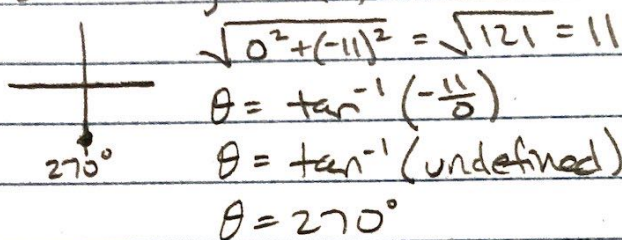 √(0² + (-11)²) = √121 = 11
θ = tan⁻¹ (-11/0)
θ = tan⁻¹ (undefined)
270°
θ = 270°